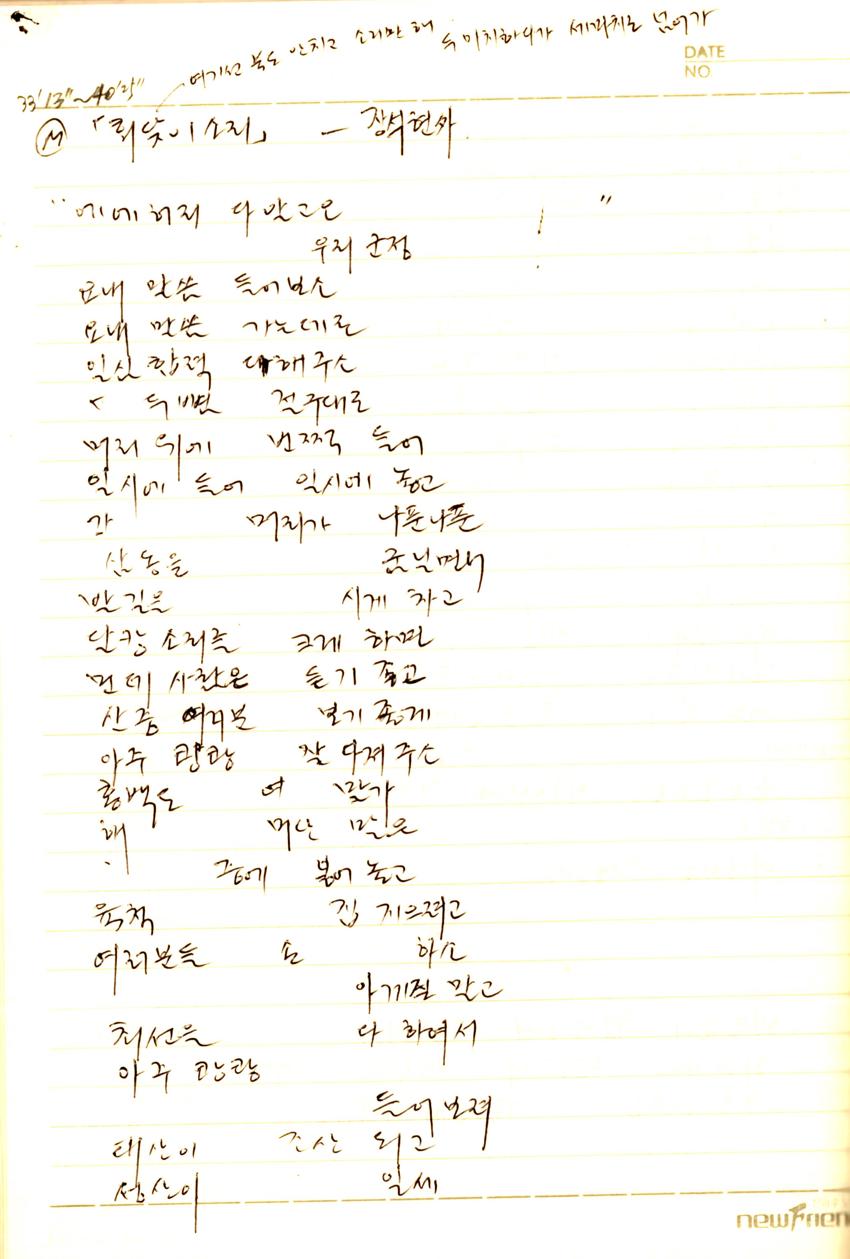 여기선 북도 안치고 소리만 해
두 마치하다가 세마치로 넘어가
DATE
NO
33'13"~40'25"
Ⓜ 「회닻이소리」 – 장석현 싸
"에에허리 다 말고오 ! "
우리 군정
요내 말씀 들어보소
요내 말씀 가는데로
일심합력 다해주소
두 번 절구대로
머리 위에 번쩍 들어
일시에 들어 일시에 놓고
각 머리가 나푼나푼
삼동을 굼닐면서
발길을 시게 차고
달캉소리를 크게 하면
먼데 사람은 듣기 좋고
산중 여러분 보기 좋게
아주 쾅쾅 잘 다져 주소
홍백도 여 말가
해 머난 말은
중에 불어 놓고
육척 집 지으려고
여러분들 손 하소
아끼질 말고
최선을 다 하여서
아주 쾅쾅
들어보져
태산이 조산 되고
성산이 일세
newFrien